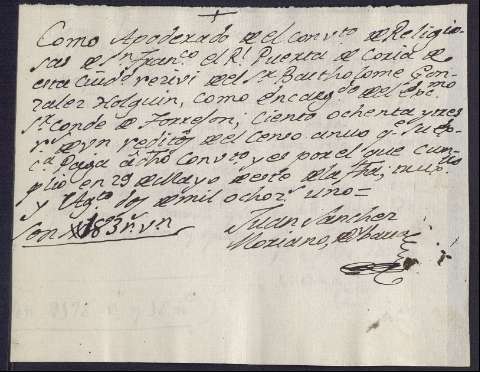 Como Apoderado de el Convto de Religio-
sas de Sn Franco el Rl Puerta de Coria de
esta Ciudd reziví del Sr Bartholome Gon-
zalez Holguin, como encargdo del Exmo
Sr Conde de Torrejon; Ciento ochenta y tres
rs de vn reditos del Censo anuo qe Su Exc
ca paga a dho Convto y es por el que cum-
plió en 29 de Mayo de este de la fha;
y Agto dos de mil ochoz.s uno=
Son 183 rs vn
Juan Sanchez
Moriano